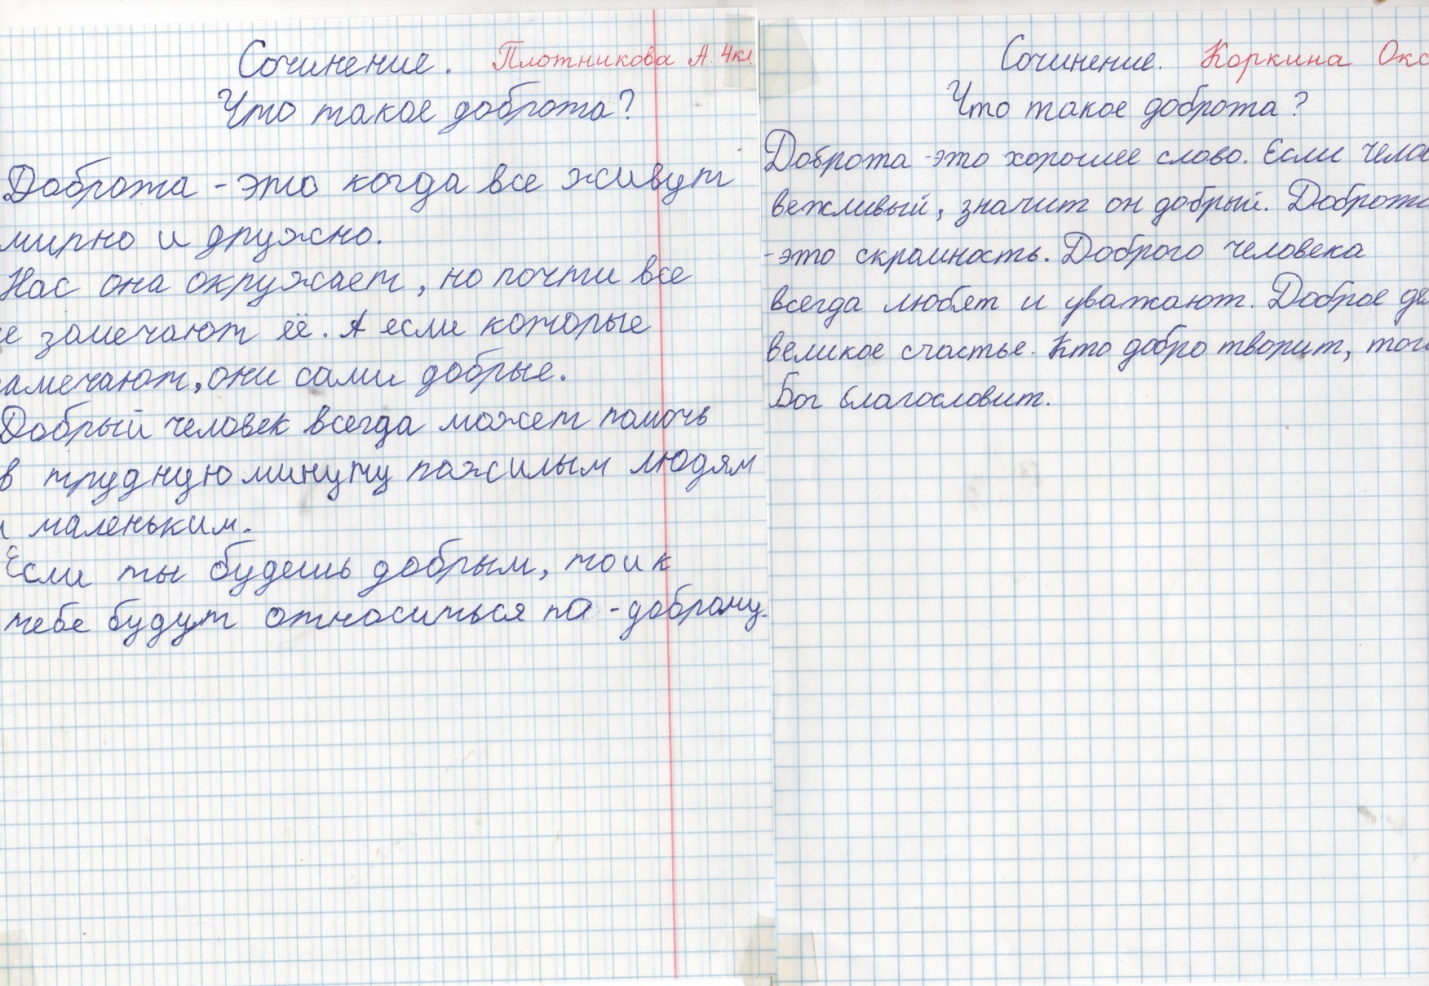 Сочинение. Плотникова А. 4кл
Что такое доброта?
Доброта - это когда все живут
мирно и дружно.
Нас она окружает, но почти все
е замечают её. А если которые
амечают, они сами добрые.
Добрый человек всегда может помочь
в трудную минуту пожилым людям
и маленьким.
Если ты будешь добрым, то и к
тебе будут относиться по-доброму.
Сочинение. Коркина Окс
Что такое доброта?
Доброта - это хорошее слово. Если челов
вежливый, значит он добрый. Доброта
- это скромность. Доброго человека
всегда любят и уважают. Доброе де
великое счастье. Кто добро творит, того
Бог благословит.